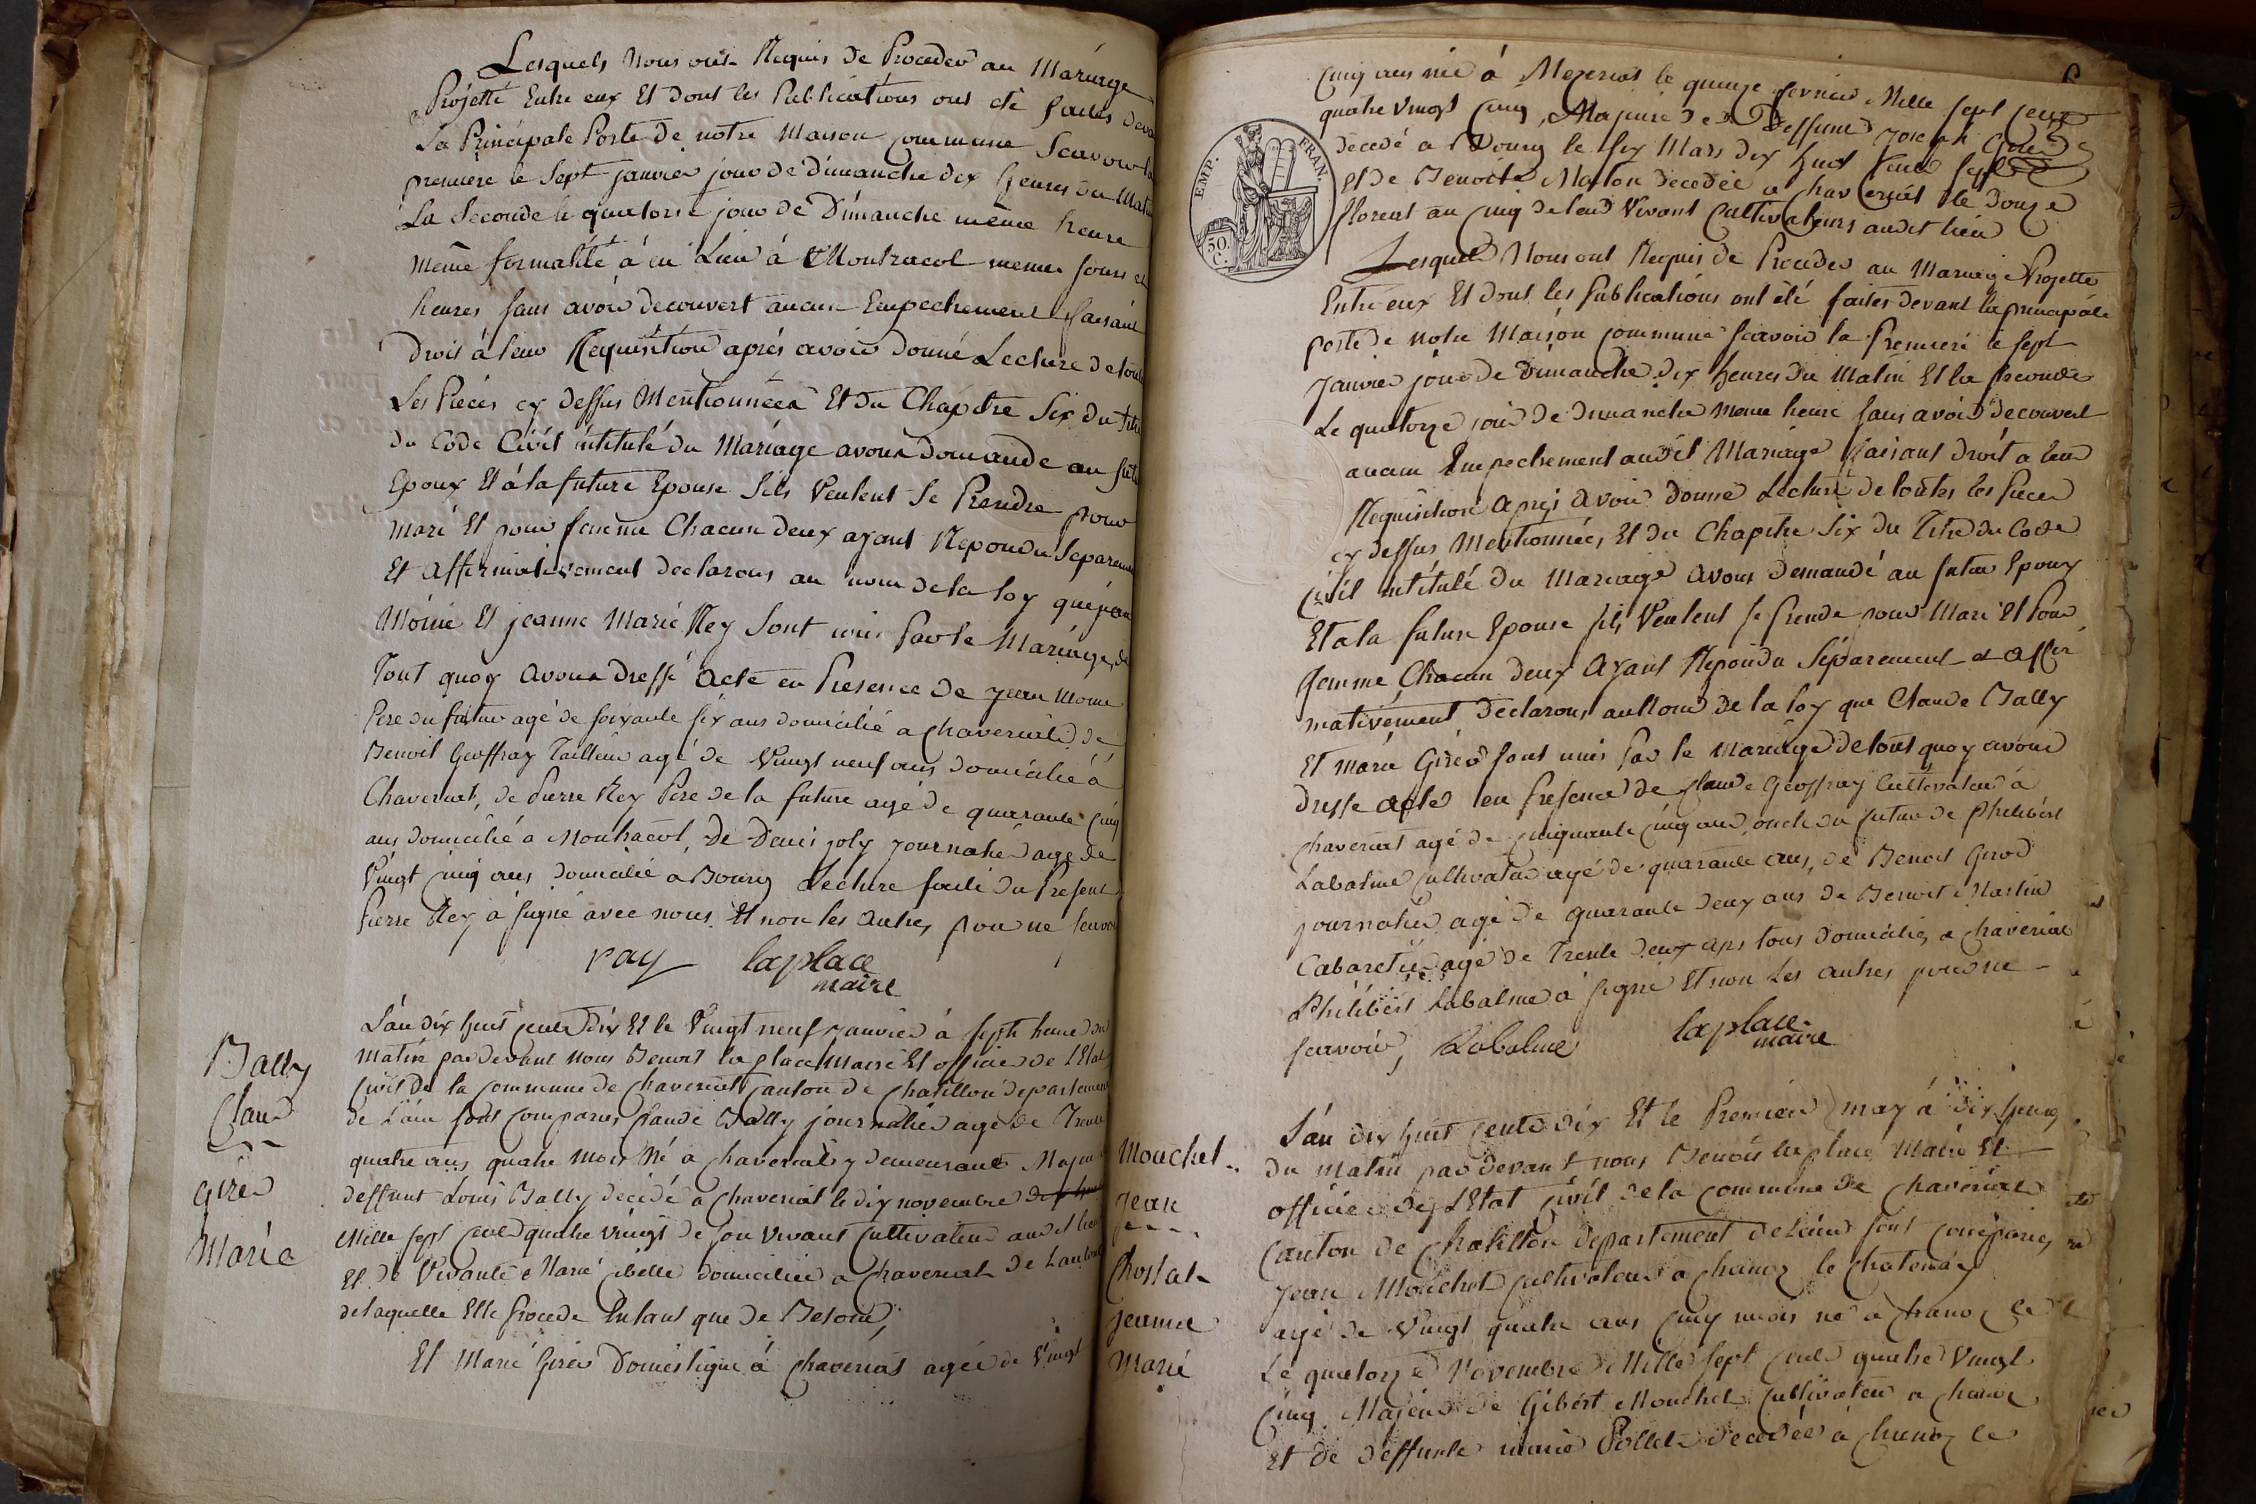 Lesquels Nous ont Requis de Proceder au Mariage
Projetté Entre eux Et dont les Publications ont été faites devant
La Principale Porte de notre Maison commune Scavoir la
premiere le Sept janvier jour de dimanche dix heures du Matin
La Seconde le quatorze jour de Dimanche même heure
même formalité à eu Lieu à Montracol meme jours et
heures sans avoir decouvert aucun Empechement faisant
Droit à leur Requisition aprés avoir donné Lecture de toute
Les Pieces cy dessus Mentionnées Et du Chapitre Six du titre
du Code Civil intitulé du Mariage avons Demande au futur
Epoux Et à la future Epouse Sils Veulent Se Prendre pour
Mari Et pour femme Chacun deux ayant Repondu Separement
Et affirmativement declarons au nom de la loy que
Moine Et jeanne Marie Rey Sont unis Par le Mariage de
Tout quoy avons dressé acte en Presence de jean Moine
Pere du futur agé de soixante six ans domicilié a chaveriat de
Benoit Geoffray Tailleur agé de Vingt neuf ans domicilié à
Chaveriat, de Pierre Rey Pere de la future agé de quarante cinq
ans domicilié a Montracol, De Denis joly journalié agé de
Vingt cinq ans domicilié a Bourg Lecture faite du Present
Pierre Rey a signé avec nous Et non les autres pour ne scavoir
ray laplace
maire
L'an dix huit cents dix Et le Vingt neuf janvier à sept heure du
matin par devant nous Benoit la place Maire Et officier de L'Etat
civil de la commune de chaveriat canton de chatillon departement
de L'ain sont comparus claude Bally journalié agé de Trente
quatre ans quatre mois né a chaveriat y demeurant Majeur
deffunt Louis Bally decedé a chaveriat le dix novembre
Mille sept cent quatre vingt de son vivant cultivateur audit lieu
Et de Vivante Marie cibelle domiciliée a chaveriat de L'autorité
de laquelle Elle procede Entant que de Besoin,
Et Marie Girer Domestique à chaveriat agée de Vingt
Bally
Claud
Girer
Marie
EMP. FRAN.
50. C.
cinq ans née à Mezeriat le quinze fevrier Mille sept cent
quatre vingt cinq, Majeure de Deffunt joseph Girer
decedé a Bourg le six Mars dix huit cent sept
Et de Benoite Marton decedée a chaveriat le douze
floreat an cinq de leur Vivant Cultivateurs audit lieu
Lesquels Nous ont Requis de Proceder au Mariage Projette
Entre eux Et dont les Publications ont été faites devant la principale
porte de notre Maison commune scavoir la Premiere le sept
janvier jour de Dimanche dix heures du Matin Et la seconde
Le quatorze jour de dimanche meme heure sans avoir decouvert
aucun Empechement audit Mariage faisant droit a leur
Requisition Après avoir Donné Lecture de toutes les Pieces
cy dessus Mentionnées, Et du Chapitre Six du Titre du Code
civil intitulé du Mariage avons demandé au futur Epoux
Et a la future Epouse sils Veulent se Prendre pour Mari Et Pour
femme Chacun deux Ayant Repondu Séparement et affir
mativement Declarons au Nom de la loy que Claude Bally
Et marie Girer sont unis Par le Mariage de tout quoy avons
dresse acte en Presence de claude Geoffray Cultivateur à
chaveriat agé de cinquante cinq ans, oncle du futur de Philibert
Labalme cultivateur agé de quarante ans, de Benoit Girod
journalier agé de quarante deux ans de Benoit Martin
Cabaretier agé de Trente deux ans tous domiciliés a chaveriat
Philibert Labalme à signé Et non Les autres pour ne
scavoir, Labalme laplace
maire
L'an dix huit cents dix Et le Premier may à dix heures
du matin par devant nous Benoit la place Maire Et
officier de L'Etat civil de la commune de chaveriat
canton de chatillon departement de L'ain sont comparus
jean Mouchet cultivateur a chanoz le chatenay
agé de Vingt quatre ans cinq mois né a chanoz
Le quatorze Novembre Mille sept cent quatre Vingt
cinq Majeur de Gibert Mouchet cultivateur a chanoz
Et de deffunte marie Pollet decedée a chanoz le
Mouchet
jean
Chossat
jeanne
Marie